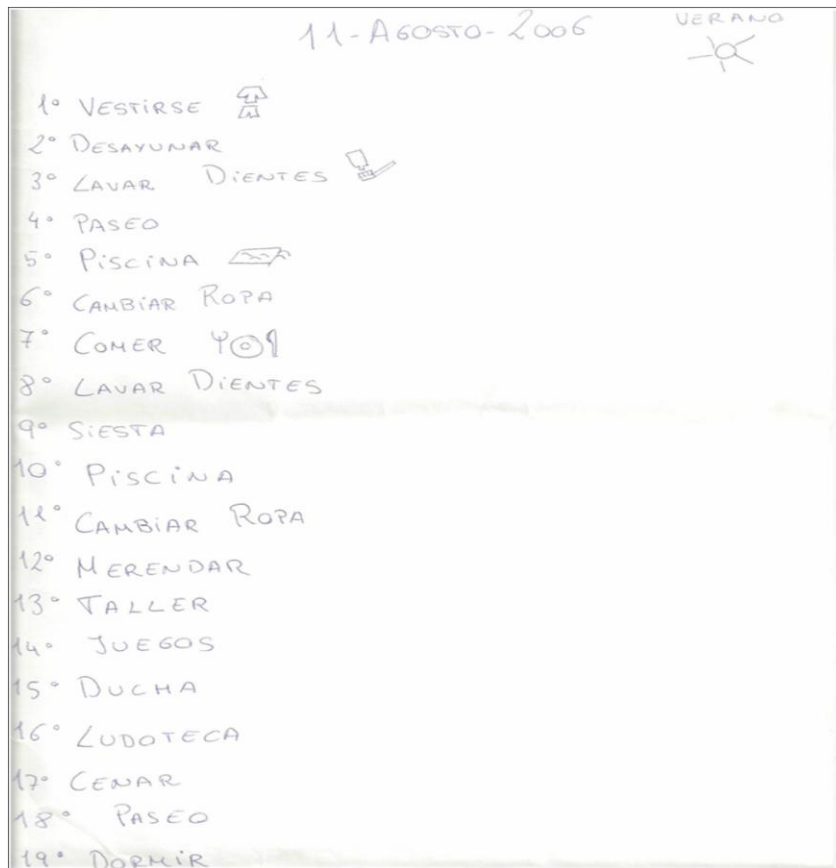 11-AGOSTO-2006 VERANO
1º VESTIRSE
2º DESAYUNAR
3º LAVAR DIENTES
4º PASEO
5º PISCINA
6º CAMBIAR ROPA
7º COMER
8º LAVAR DIENTES
9º SIESTA
10º PISCINA
11º CAMBIAR ROPA
12º MERENDAR
13º TALLER
14º JUEGOS
15º DUCHA
16º LUDOTECA
17º CENAR
18º PASEO
19º DORMIR